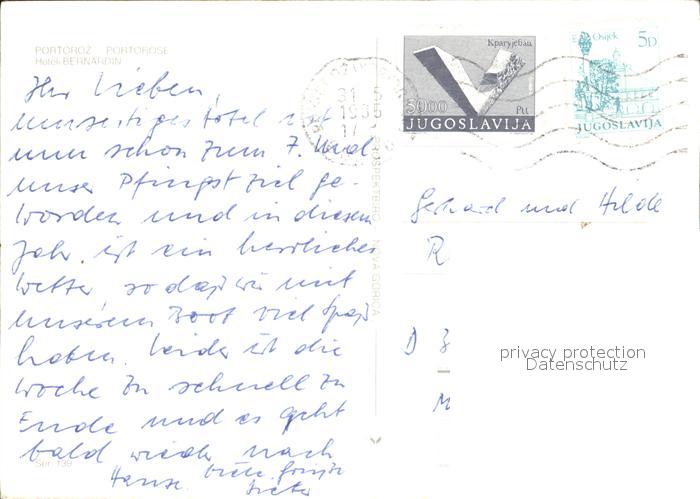 PORTOROŽ PORTOROSE
Hoteli BERNARDIN
Ihr Lieben,
unser Hotel ist
nun schon zum 7. Mal
unser Pfingstziel ge-
worden und in diesem
Jahr ist ein herrliches
Wetter, so daß wir mit
unserem Boot viel Spaß
haben. Leider ist die
Woche zu schnell zu
Ende und es geht
bald wieder nach
Hause. Viele Grüße
Dieter
Ser. 139
NOVA GORICA
31 5
17
Крагујевац
50.00
Pu
JUGOSLAVIJA
Osijek 5D
JUGOSLAVIJA
Gerhard und Hilde
R
D
M
privacy protection
Datenschutz